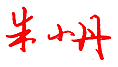 朱小丹